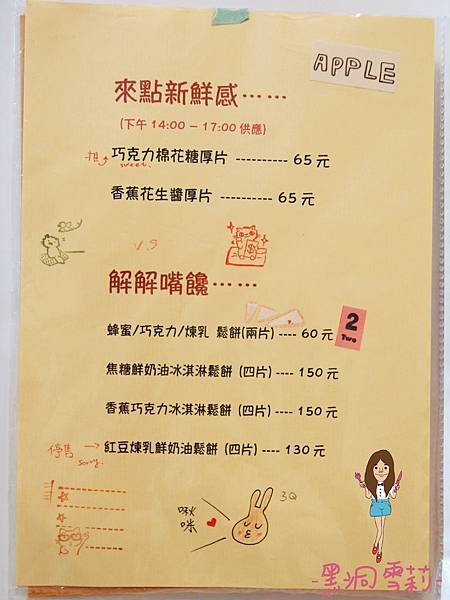 APPLE
來點新鮮感……
(下午 14:00 – 17:00 供應)
推 巧克力棉花糖厚片 ---------- 65 元
sweet.
香蕉花生醬厚片 ---------- 65 元
V.S
$
解解嘴饞……
蜂蜜/巧克力/煉乳 鬆餅(兩片) ---- 60 元
2
Two
焦糖鮮奶油冰淇淋鬆餅 (四片) ---- 150 元
香蕉巧克力冰淇淋鬆餅 (四片) ---- 150 元
停售 → 紅豆煉乳鮮奶油鬆餅 (四片) ---- 130 元
sorry.
啾咪
3Q
-墨洞雪莉-